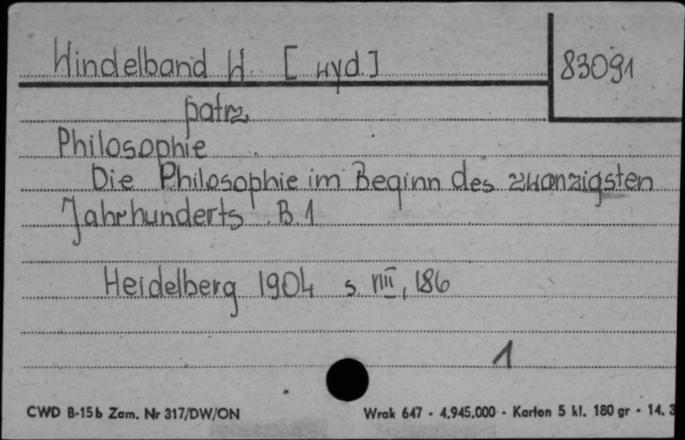 Windelband W. [wyd.]
83091
patrz
Philosophie
Die Philosophie im Beginn des zwanzigsten
Jahrhunderts. B. 1
Heidelberg 1904 s. VIII, 186
1
CWD B-15b Zam. Nr 317/DW/ON
Wrak 647 - 4.945.000 - Karton 5 kl. 180 gr - 14. 3